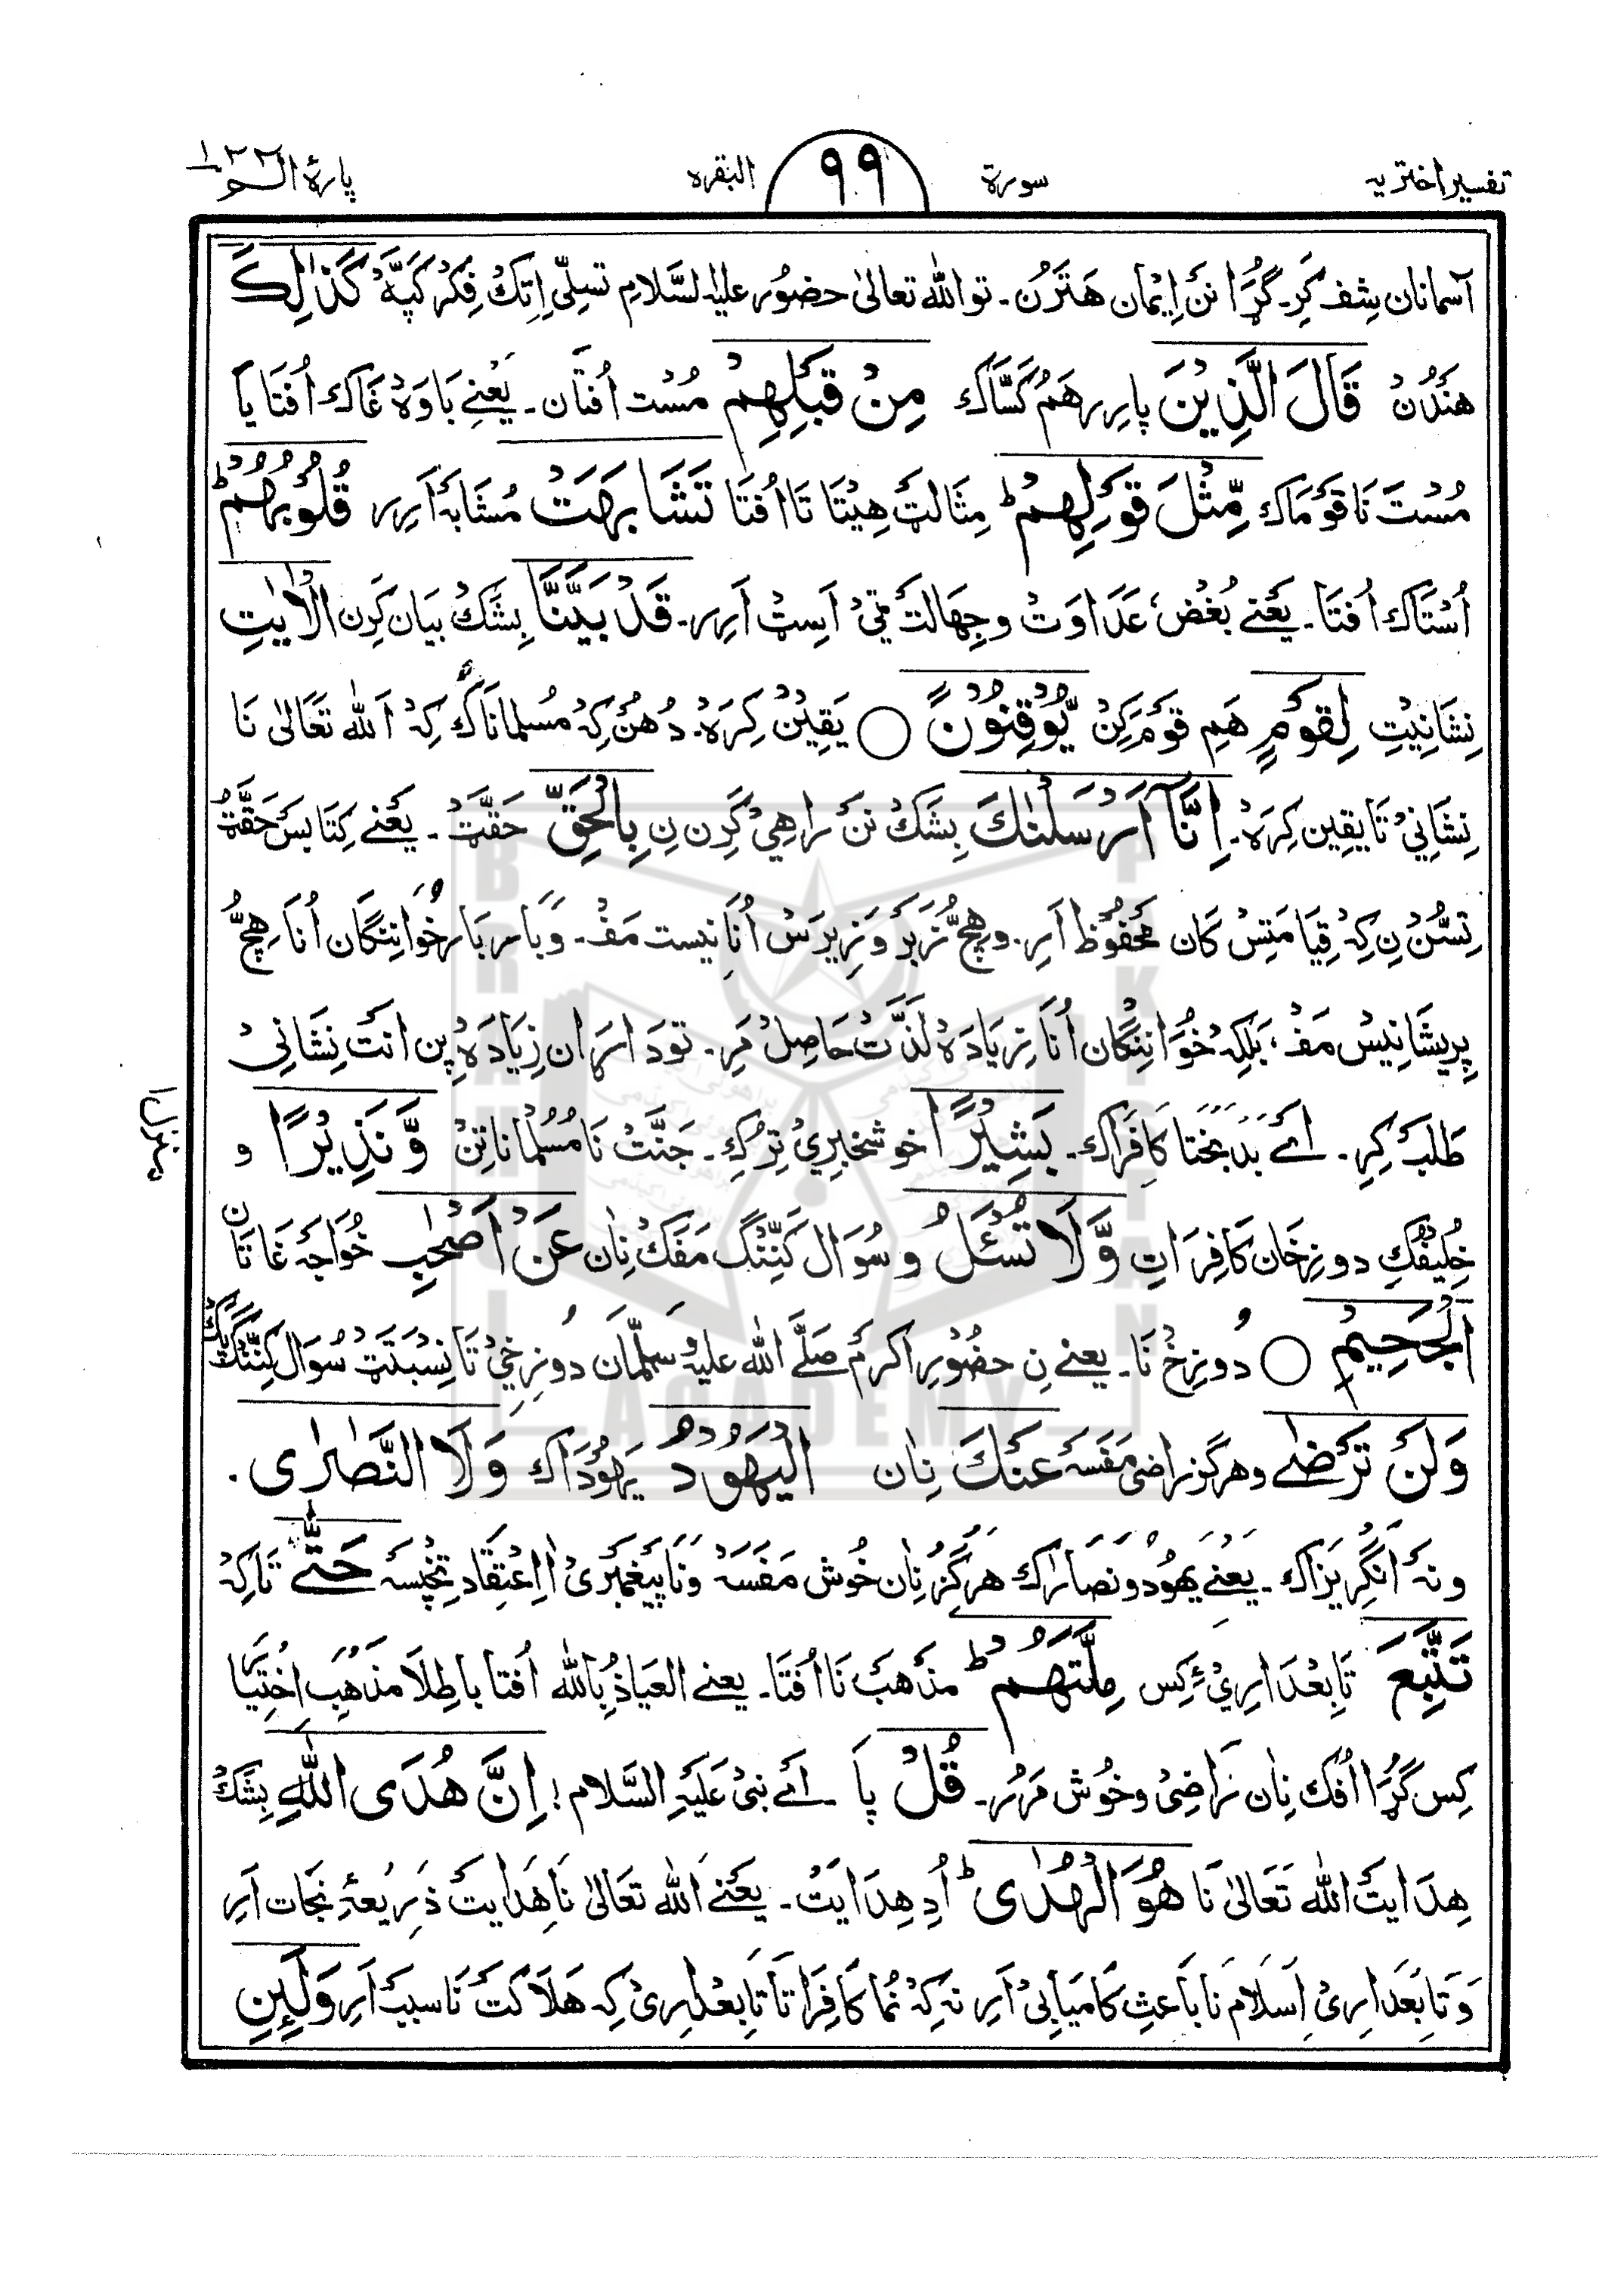 تفسیر اختریہ سورۃ ۹۹ البقرہ پارۂ الٓــمّٓ
آسمانان شِف کَرِ۔ گُڑا نَن اِیْمان هَتَرُن۔ تو اللّٰہ تعالیٰ حضوُر علیہ السَّلامِ تسلّی اِتِکْ فِکْر کَپَّہْ کَذٰلِكَ
هَنْدُنْ قَالَ الَّذِیْنَ پارِرهَمْ کَسَّاک مِنْ قَبْلِهِمْ مُسْت اُفتان۔ یَعْنے بَاوَہْ غَاک اُفتَا یا
مُسْتَ نَا قَوْمَاک مِّثْلَ قَوْلِهِمْ ؕ مِثَالَٹ هِیْتَا تَا اُفتَا تَشَابَهَتْ مُشَابَہْ اَرِر قُلُوْبُهُمْ ؕ
اُسْتَاک اُفتَا۔ یَعْنے بُغْض، عَدَاوَتْ وجِهَالتْ ٹیْ اَسِٹْ اَرِر۔ قَدْ بَیَّنَّا بِشَّکْ بیَان کَرِن الْاٰیٰتِ
نِشَانِیْتِ لِقَوْمٍ هَمِ قَوْمَ کِنْ یُّوْقِنُوْنَ ○ یَقِیْنْ کِرَہْ۔ دُهُنْ کِہْ مُسلماناک کِہْ اَللّٰہ تَعَالیٰ نَا
نِشَانِیْ تَا یقِین کِرَہْ۔ اِنَّاۤ اَرْسَلْنٰكَ بِشَکْ نَن رَاهِیْ کَرِن نِ بِالْحَقِّ حَقَّٹْ۔ یَعْنے کِتَابَس حَقَّہْ
تِسُّنْ نِ کِہْ قِیَامَتِسْ کَان مَحْفُوْظ اَرِ۔ وَهِچّ زَبَرْ وَزِیرَسْ اُنَا نیست مَفْ۔ وَبَاربَار خُوَانِنگان اُنَا هِچّ
پِریشَانِیَسْ مَفْ، بَلکِہْ خُوَانِنگان اُنَا زِیَادَہْ لَذَّتْ حَاصِلْ مَرِ۔ تو دَارَان زِیَادَہْ پِن اَنتْ نِشَانِیْ
طَلبْ کِرِ۔ اَےْ بَدْ بَخْتَا کَافِرَاک۔ بَشِیْرًا خوشخبرِیْ تِرُکِ۔ جَنَّتْ نَا مُسُلمَانَاتِنْ وَّنَذِیْرًا و
خُلِیْفُکِ دوزخان کَافِرَاتِ وَّلَا تُسْـَٔلُ و سُوَال کَنِنگ مَفَکْ نِان عَنْ اَصْحٰبِ خُوَاجَہ غَاتَان
الْجَحِیْمِ ○ دوزخْ نَا۔ یعنے نِ حضُوْرِ اکرمْ صَلَّے اللّٰہ علیہ وسلّمَان دوزخِیْ تَا نِسْبَتَٹْ سُوَال کَنِنگ
وَلَنْ تَرْضٰے وهرگز راضی مَفَسَہ عَنْكَ نِان الْیَهُوْدُ یَهُوْدَاک وَلَا النَّصٰرٰی۔
ونَہ اَنگریزاک۔ یَعْنے یہوُدونصَارٰاک هَرگز نِان خُوْش مَفَسَہْ وَنَا پَیْغَمْبَرِیْ اِ اِعْتِقَاد تِخْپَسَہ حَتّٰے تاکِہْ
تَتَّبِعَ تَابِعْدَارِیْ ءِ کِس مِلَّتَهُمْ ؕ مَذْهَبْ نَا اُفتَا۔ یعنے العیَاذُ بِاللّٰہ اُفتا باطِلَا مَذْهَبِ اِختِیَار
کِس گُڑَا اُفک نِان رَاضِیْ وخُوش مَرُر۔ قُلْ پا ۔ اَےْ نبیْ عَلَیْہِ السَّلام! اِنَّ هُدَی اللّٰهِ بِشَکْ
هِدَایتْ اللّٰہ تَعَالیٰ نَا هُوَ الْهُدٰی ؕ اُدِ هِدَایَتْ۔ یَعْنے اَللّٰہ تَعَالیٰ نَا هِدَایت ذَرِیْعَۂ نَجَات اَرِ
وَتَابِعْدَارِیْ اِسَلَامْ نَا بَاعثِ کَامیَابِیْ اَرِ نَہ کِہْ نُمَا کَافِرَا تَا تَابِعْدَارِیْ کِہ هَلَاکَتْ نَا سبب اَرِ وَلَئِنِ
منزل ۱
BRAHUI ACADEMY PAKISTAN